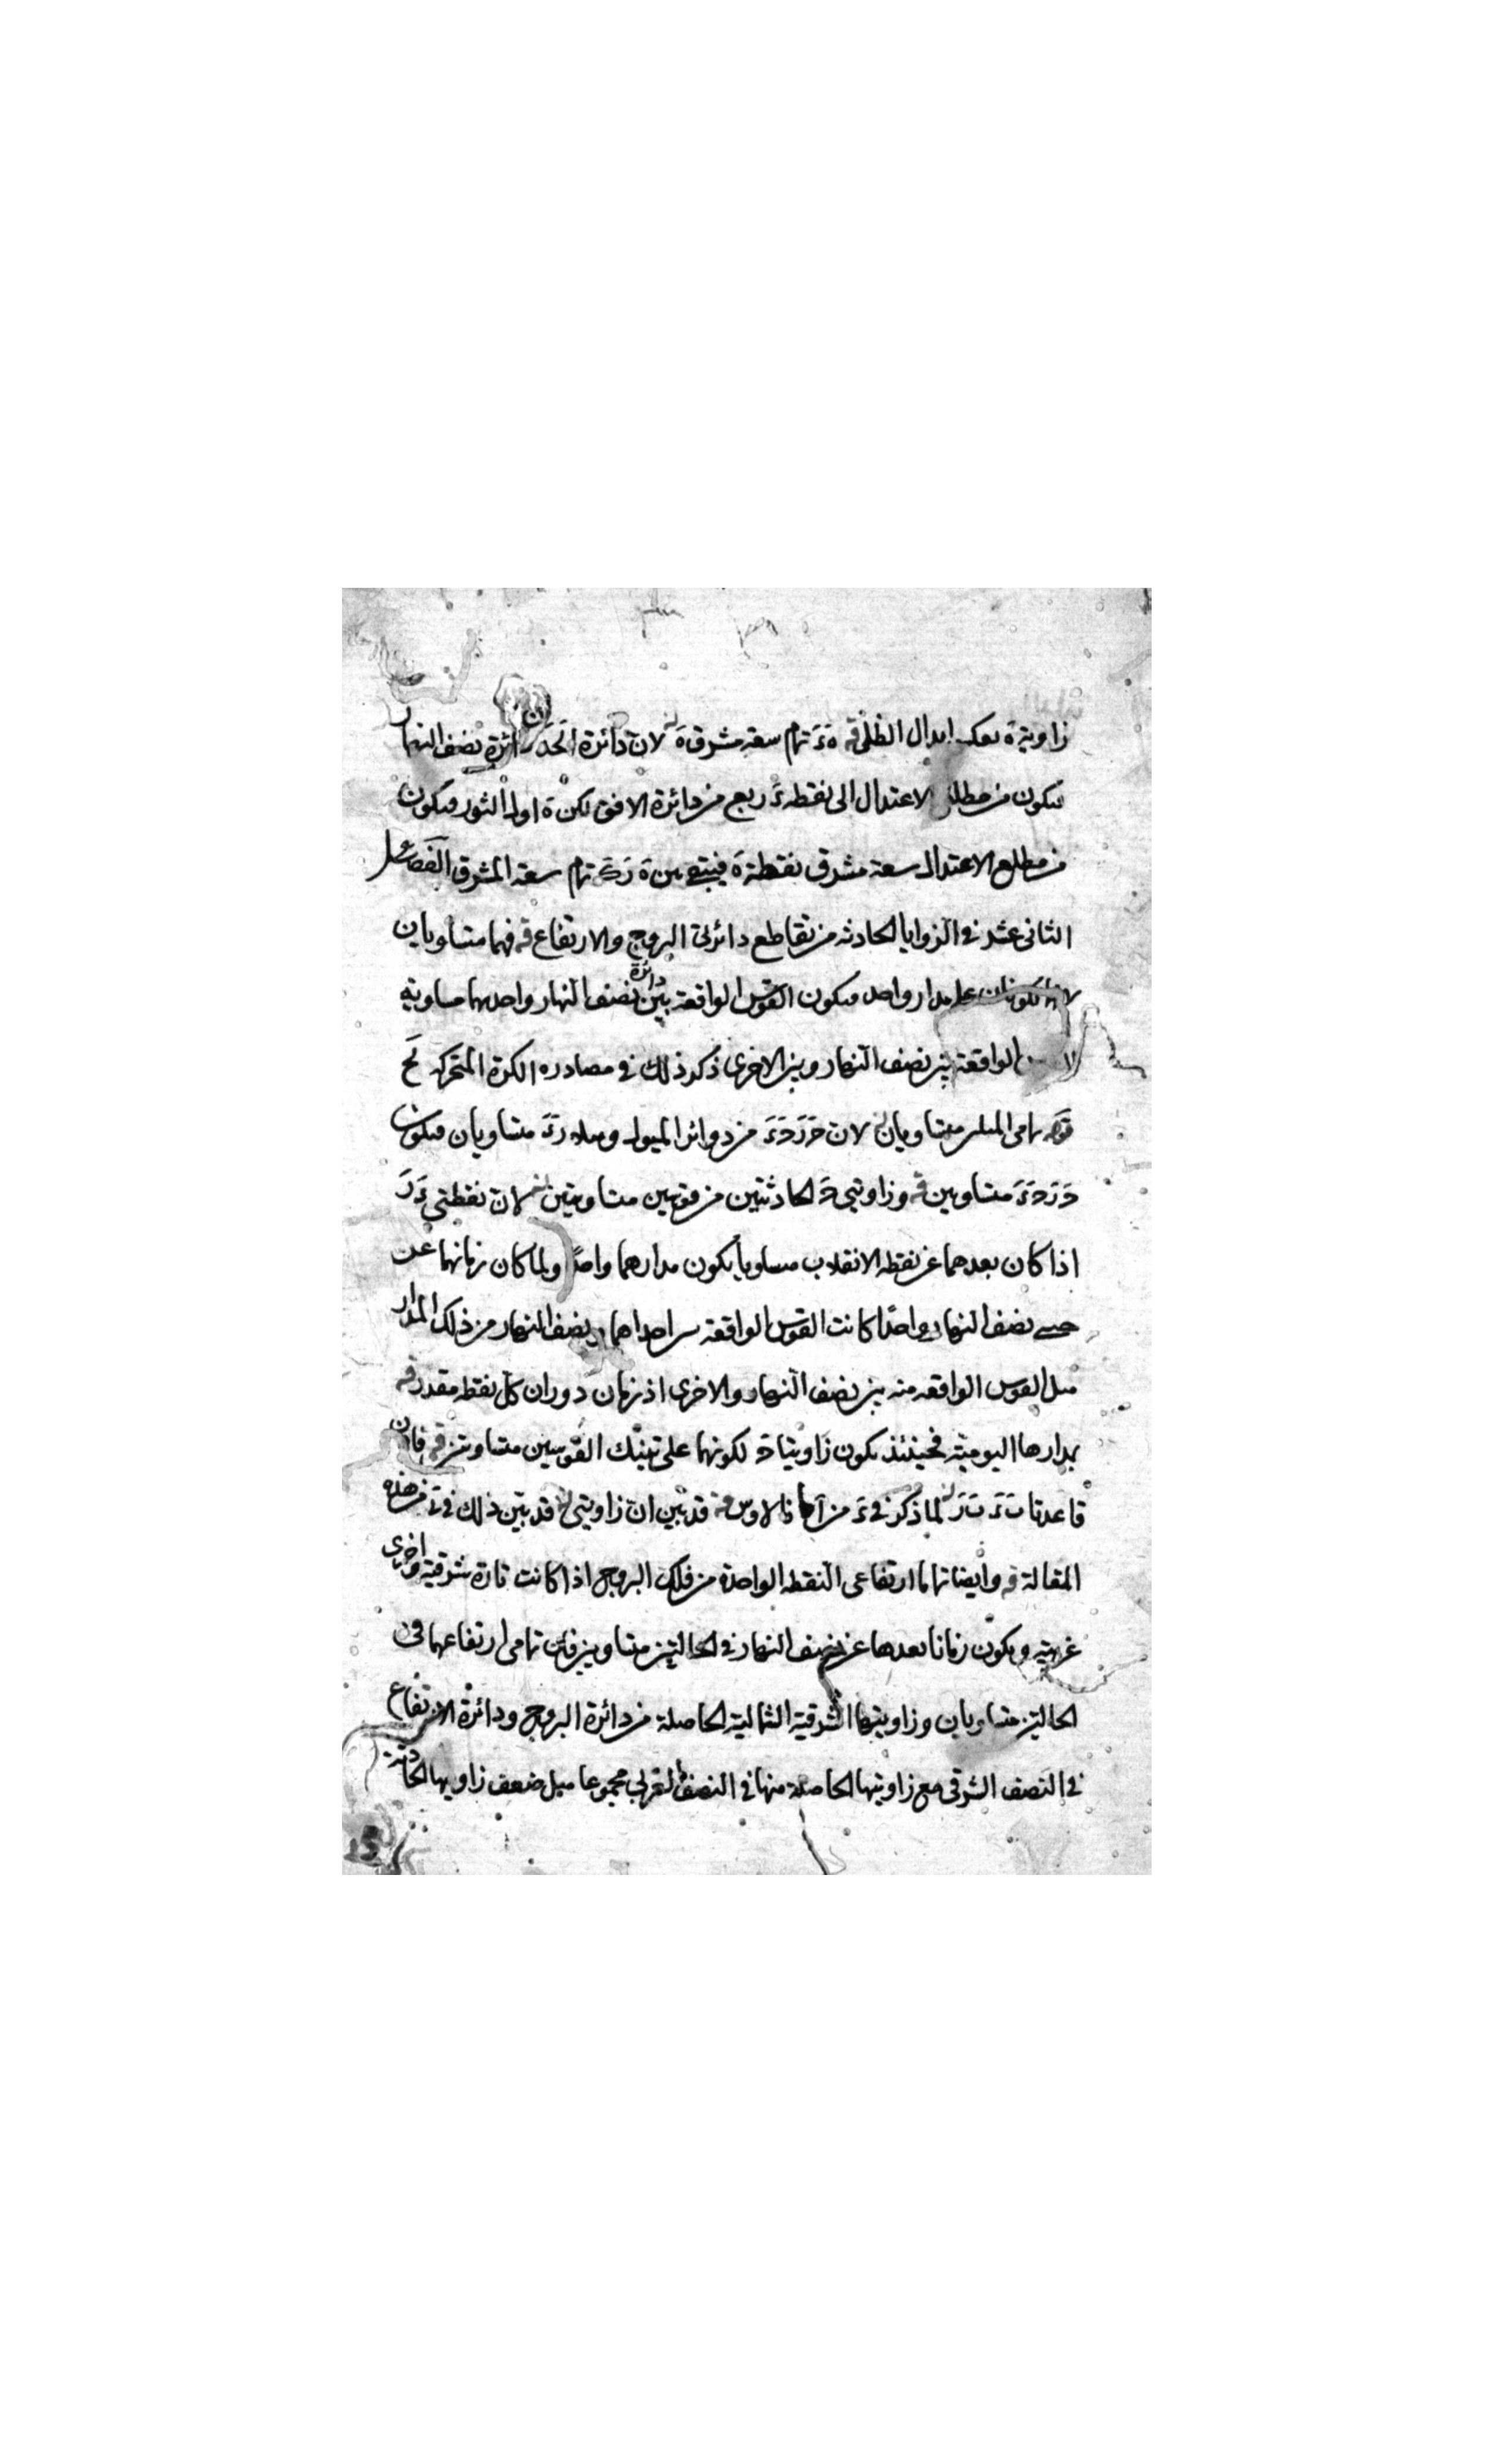 زاوية ه بعكس ابدال الظلي قه ه ء تمام سعة مشرق ه لان دائرة نصف النهار
فيكون من مطلع الاعتدال الى نقطة ء ربع من دائرة الافق لكن ه اول الثور فيكون
من مطلع الاعتدال سعة مشرق نقطة ه فيبقى من تمام سعة المشرق الفصل
الثانى عشر فى الزوايا الحادثه من تقاطع دائرتى البروج والارتفاع قه فهما متساويان
على مدار واحد فيكون القوس الواقعة بين دائرة نصف النهار واحدهما مساوية
الواقعة بين نصف النهار وبين الاخرى ذكر ذلك فى مصادره الكرة المتحركه
تمامى الميلين متساويان لان من دوائر الميول وميلا ر ء متساويان فيكون
ح ر ح ء متساويين قه وزاويتى ح الحادثتين من قوسين متساويتين لان نقطتى ء ر
اذا كان بعدهما عن نقطه الانقلاب مساويا يكون مدارهما واحدا ولما كان زمانهما عن
نصف النهار واحدا كانت القوس الواقعة بين احداهما ونصف النهار من ذلك المدار
مثل القوس الواقعه منه بين نصف النهار والاخرى اذ زمان دوران كل نقطه مقدر قه
بمدارها اليوميّة فحينئذ يكون زاويتا ح لكونهما على تينك القوسين متساويتين قه فان
قاعدتا ب ء ب ر لما ذكر فى ء من مانالاوس قه قد تبين ان زاويتى قد تبين ذلك فى من هذه
المقالة قه وايضا تماما ارتفاعى النقطه الواحدة من فلك البروج اذا كانت تارة شرقية واخرى
غربية ويكون زمانا بعدها عن نصف النهار فى الحالتين متساويين فان تمامى ارتفاعهما فى
الحالتين متساويان وزاويتها الشرقية الشمالية الحاصلة من دائرة البروج ودائرة الارتفاع
فى النصف الشرقى مع زاويتها الحاصلة منها فى النصف الغربى مجموعا مثل ضعف زاويتها الحادثة